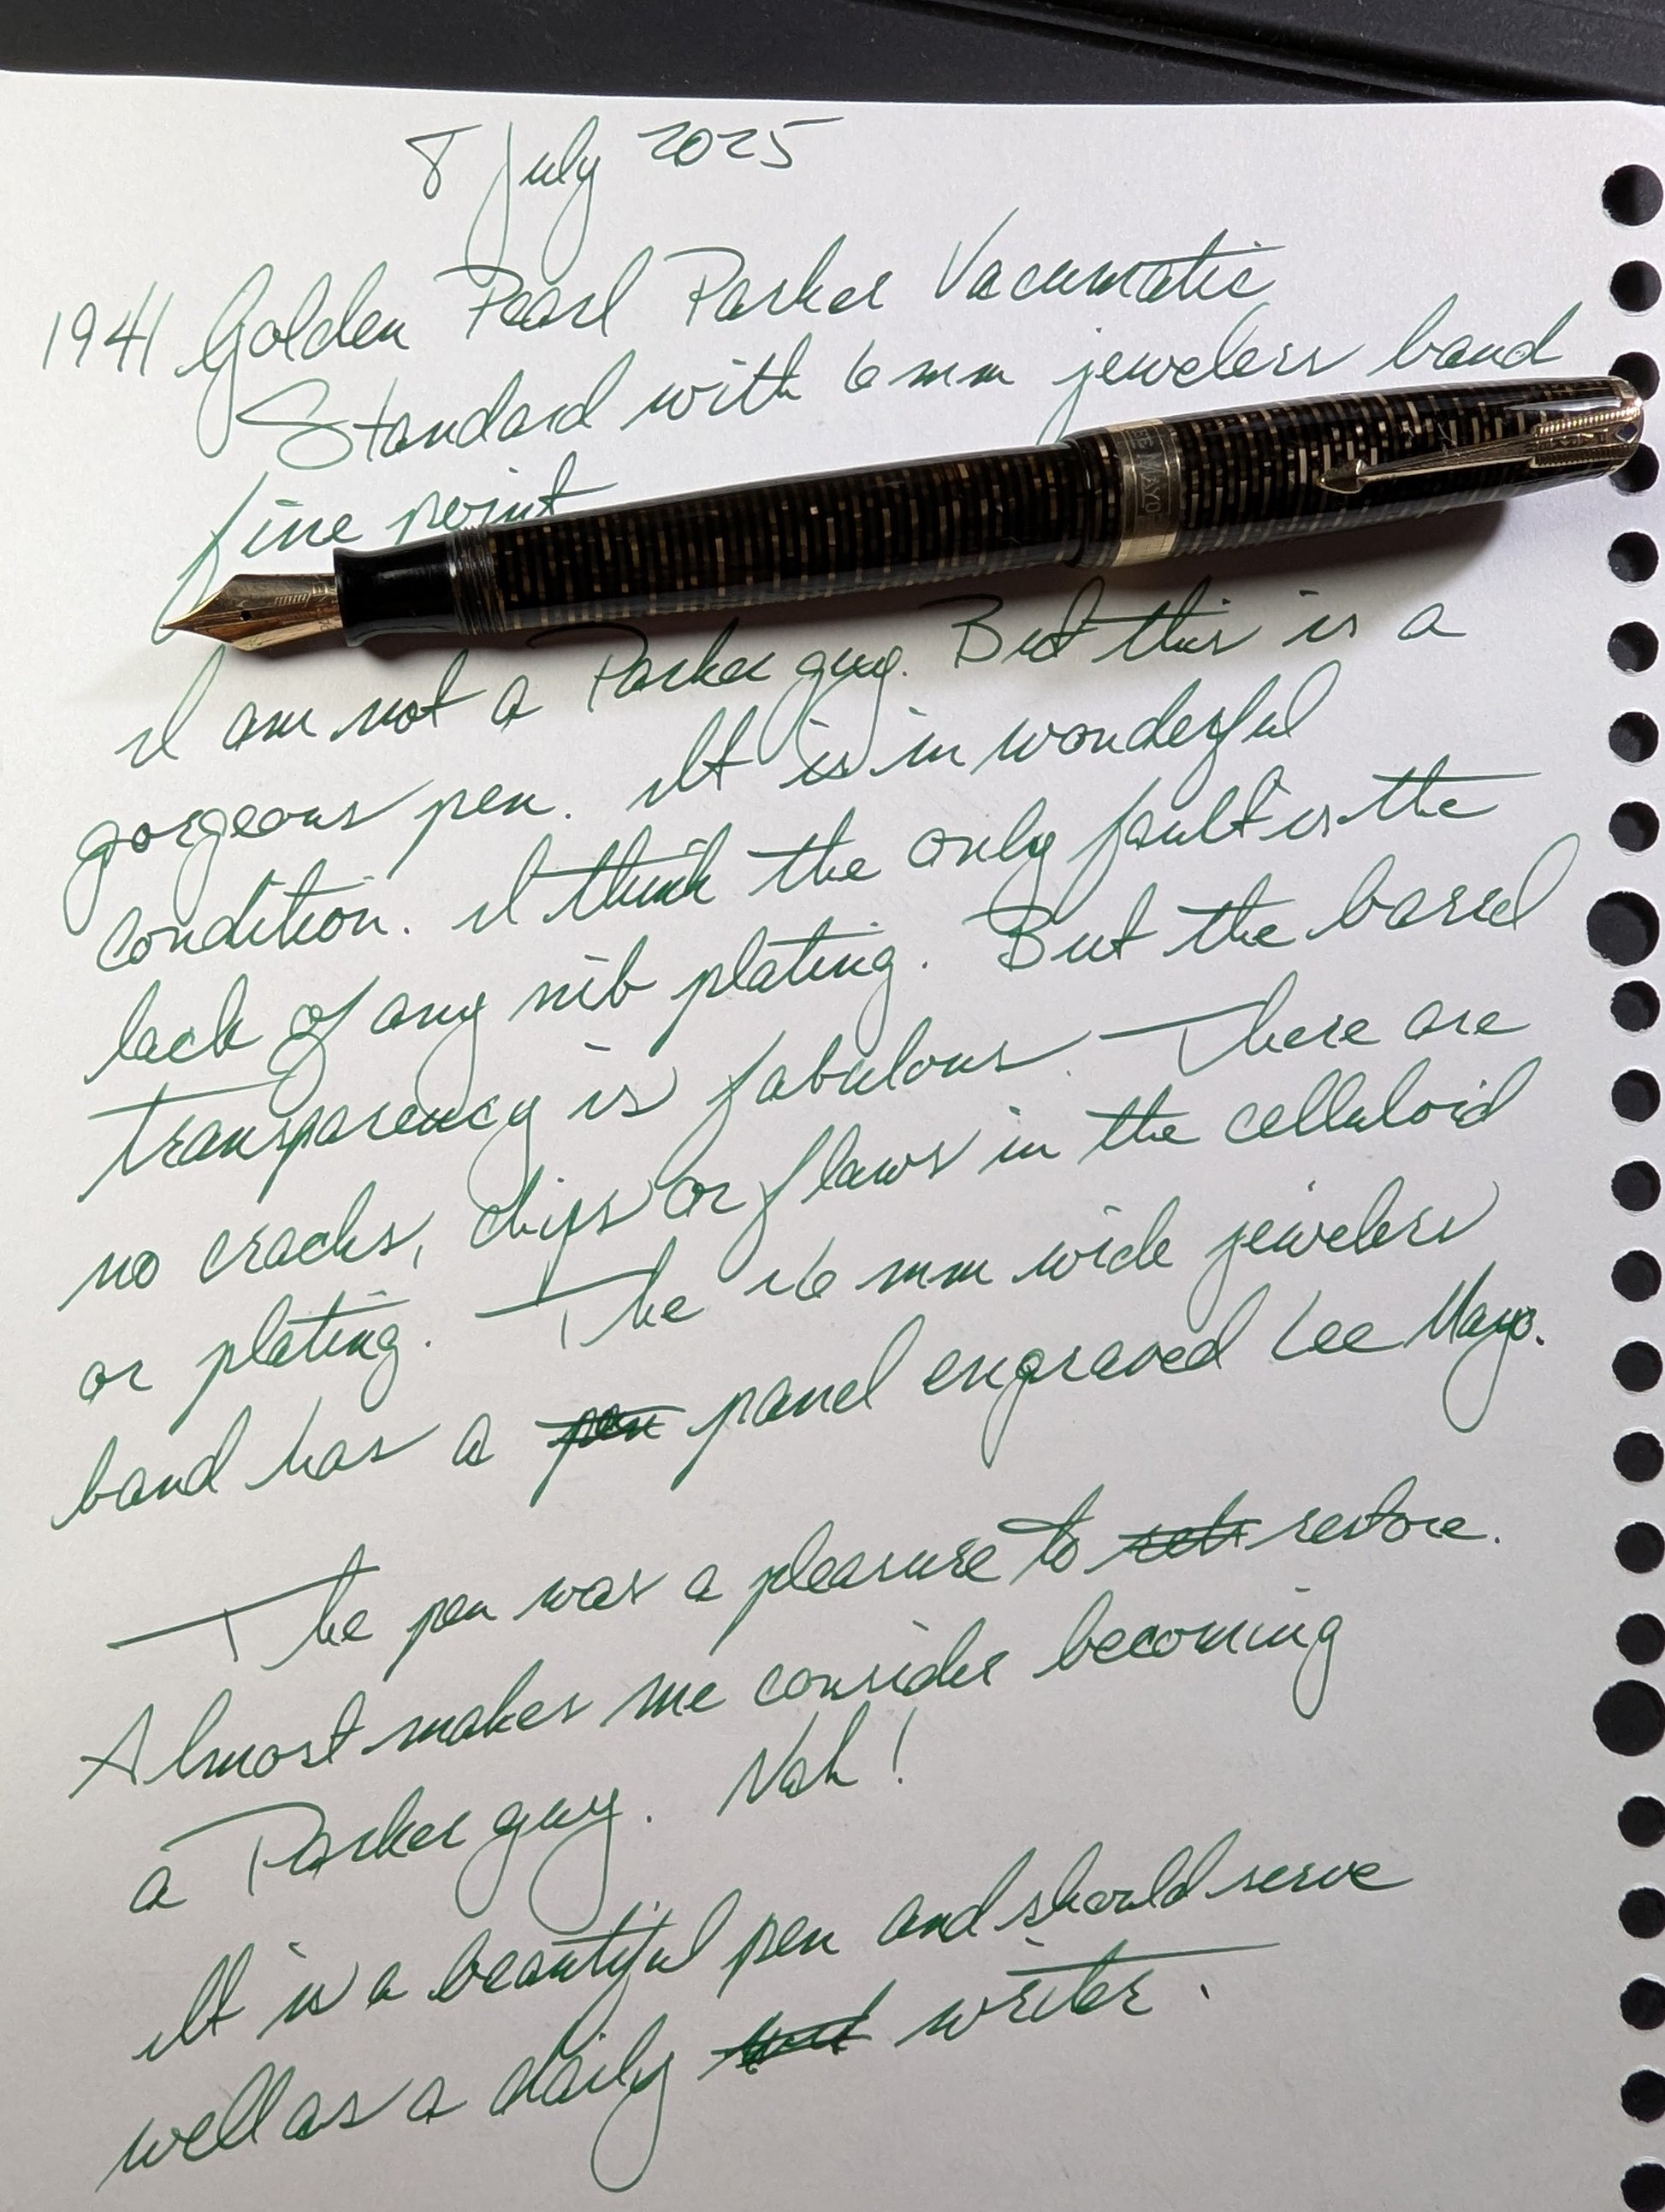 8 July 2025
1941 Golden Pearl Parker Vacumatic
Standard with 6mm jewelers band
fine point
EE MAYO
I am not a Parker guy. But this is a
gorgeous pen. It is in wonderful
condition. I think the only fault is the
lack of any nib plating. But the barrel
transparency is fabulous. There are
no cracks, chips or flaws in the celluloid
or plating. The 6 mm wide jewelers
band has a pen panel engraved Lee Mayo.
The pen was a pleasure to restore.
Almost makes me consider becoming
a Parker guy. Nah!
It is a beautiful pen and should serve
well as a daily writer.